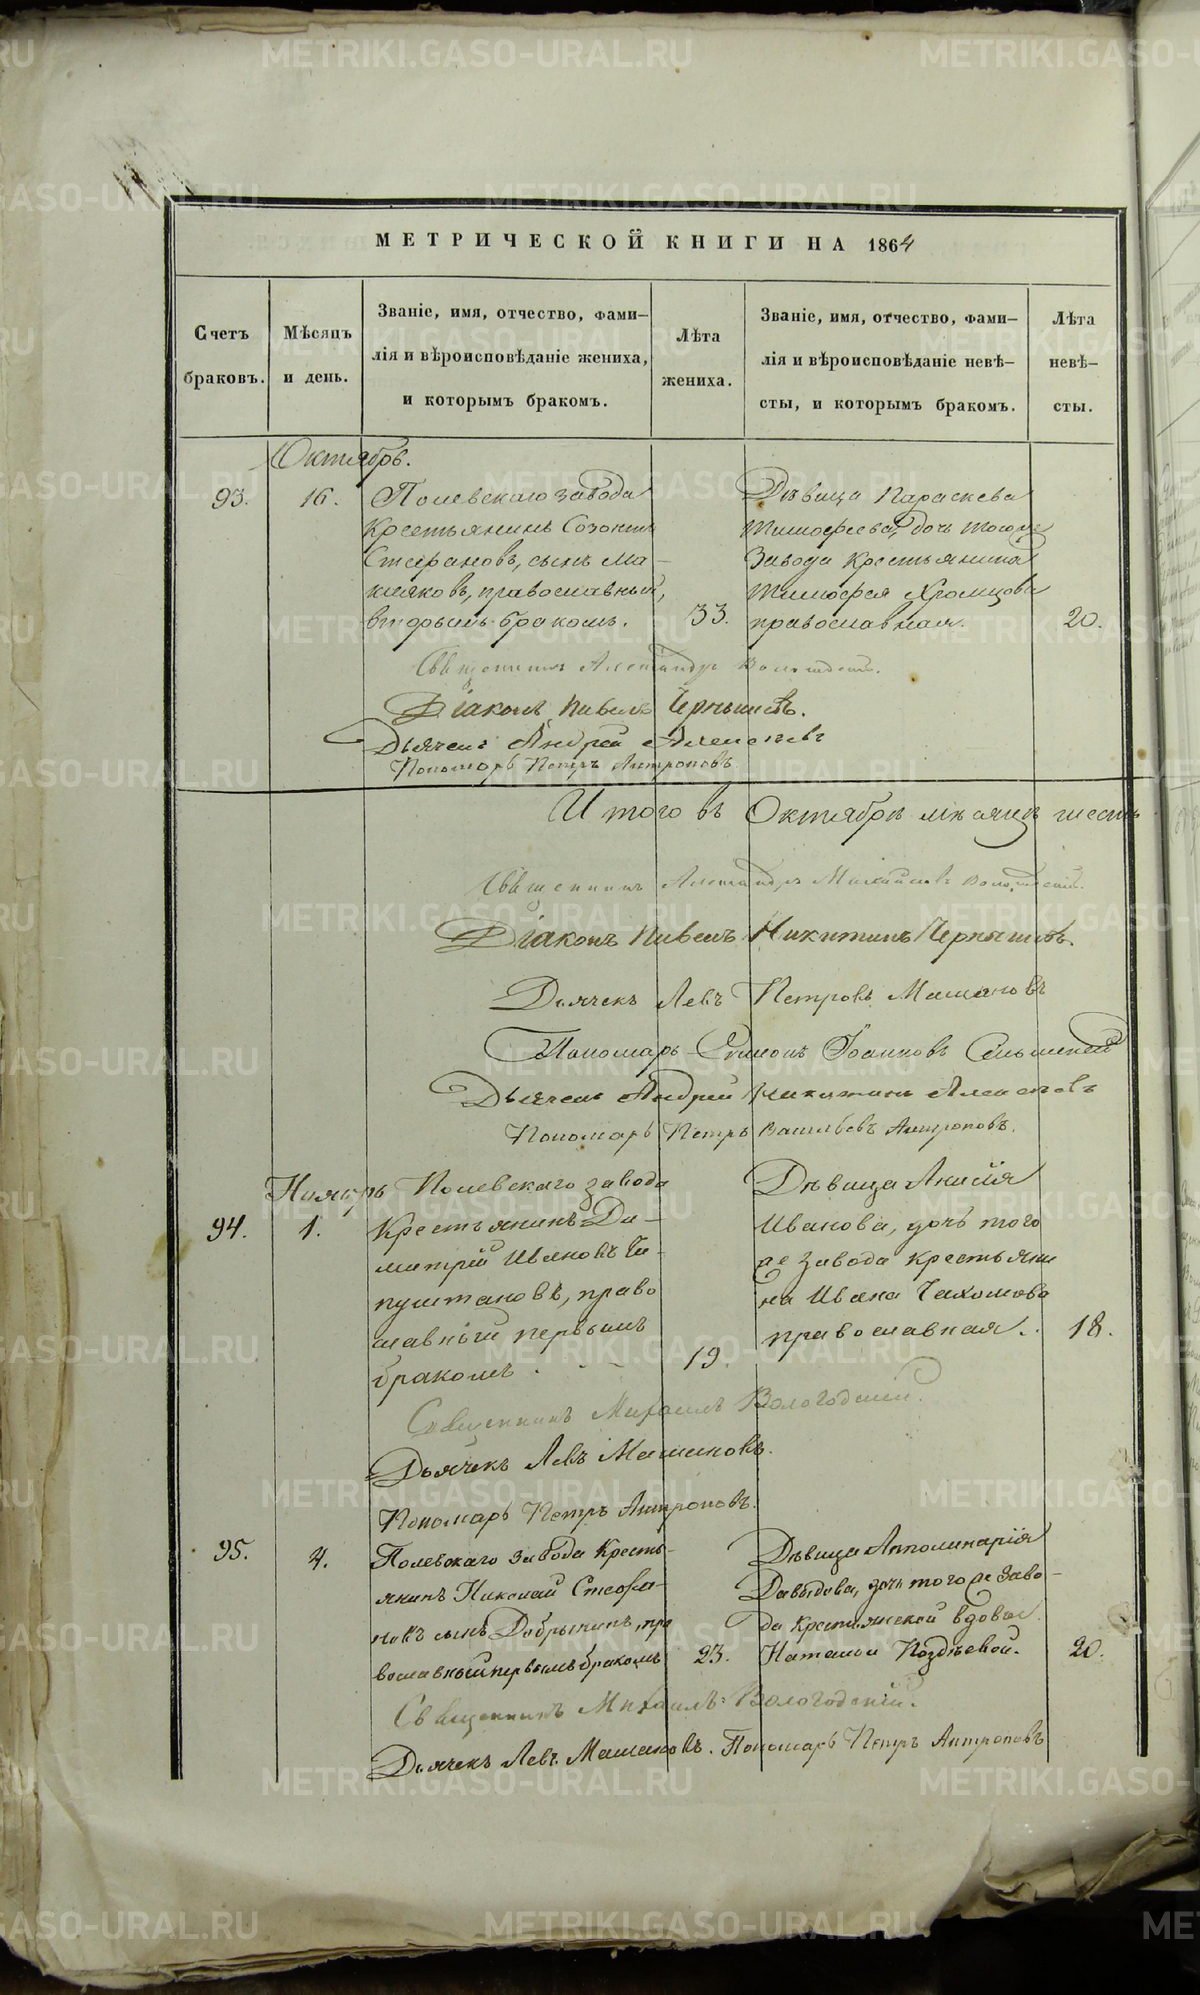 МЕТРИЧЕСКОЙ КНИГИ НА 1864
Счетъ браковъ.
Мѣсяцъ и день.
Званіе, имя, отчество, фами-
лія и вѣроисповѣданіе жениха,
и которымъ бракомъ.
Лѣта жениха.
Званіе, имя, отчество, фами-
лія и вѣроисповѣданіе невѣ-
сты, и которымъ бракомъ.
Лѣта невѣ-
сты.
Октябрь.
93.
16.
Полевскаго завода
Крестьянинъ Созонтъ
Стефановъ, сынъ Ма-
каяковъ, православный,
вторымъ бракомъ.
33.
Дѣвица Параскева
Тимофеева, дочь тогоже
Завода Крестьянина
Тимофея Хромцова
православная.
20.
Священникъ Александръ
Діаконъ Павелъ Чернышевъ.
Дьячекъ Андрей Алексѣевъ
Пономарь Петръ Антроповъ
Итого въ Октябрѣ мѣсяцѣ шесть
Священникъ Александръ Михайловъ
Діаконъ Павелъ Никитинъ Чернышевъ.
Дьячекъ Левъ Петровъ Машановъ
Пономарь Симонъ Іоанновъ
Дьячекъ Андрей Никитинъ Алексѣевъ
Пономарь Петръ Васильевъ Антроповъ.
Ноябрь
94.
1.
Полевскаго завода
Крестьянинъ Ди-
митрій Ивановъ Ча-
пуштановъ, право
славный первымъ
бракомъ.
19.
Дѣвица Анисія
Иванова, дочь того
же завода крестьяни
на Ивана Пахомова
православная.
18.
Священникъ Михаилъ Вологодскій.
Дьячекъ Левъ Машановъ.
Пономарь Петръ Антроповъ.
95.
4.
Полевскаго завода Кресть-
янинъ Николай Стефа-
новъ сынъ Добрынинъ, пра
вославный первымъ бракомъ
23.
Дѣвица Апполинарія
Давыдова, дочь того же Заво-
да Крестьянской вдовы
Натальи Поздѣевой.
20.
Священникъ Михаилъ Вологодскій.
Дьячекъ Левъ Машановъ. Пономарь Петръ Антроповъ
METRIKI.GASO-URAL.RU